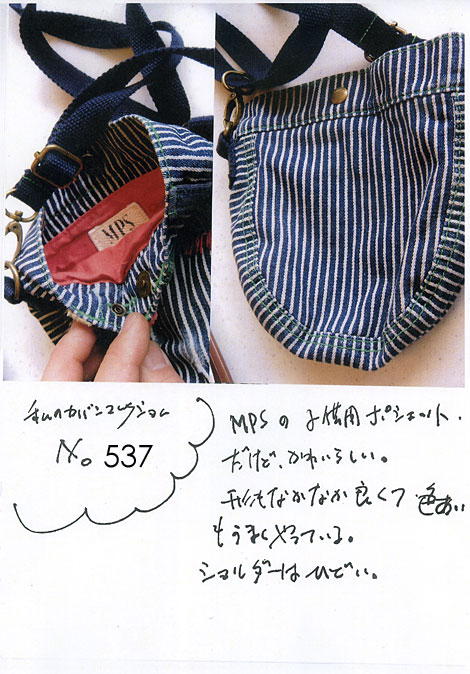 MPS
私のカバンコレクション
No 537
MPSの子供用ポシェット.
だけど、かわいらしい。
形もなかなか良くて色あい
もうまくやっている。
ショルダーはひどい。